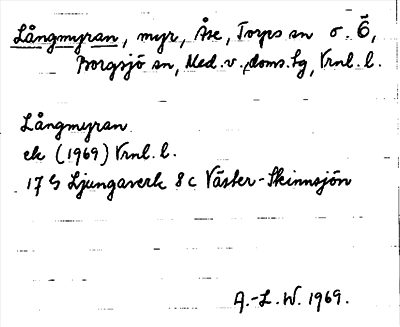 Långmyran, myr, Åse, Torps sn o. Ö,
Borgsjö sn, Med. v. doms. tg, Vrnl. l.
Långmyran
ek (1969) Vrnl. l.
17 G Ljungaverk 8 c Väster-Skinnsjön
A.-L. W. 1969.